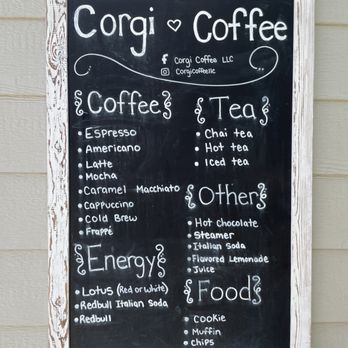 Corgi ♡ Coffee
Corgi Coffee LLC
Corgicoffeellc
{Coffee}
• Espresso
• Americano
• Latte
• Mocha
• Caramel Macchiato
• Cappuccino
• Cold Brew
• Frappé
{Energy}
• Lotus (Red or White)
• Redbull Italian Soda
• Redbull
{Tea}
• Chai tea
• Hot tea
• Iced tea
{Other}
• Hot Chocolate
• Steamer
• Italian Soda
• Flavored Lemonade
• Juice
{Food}
• Cookie
• Muffin
• Chips